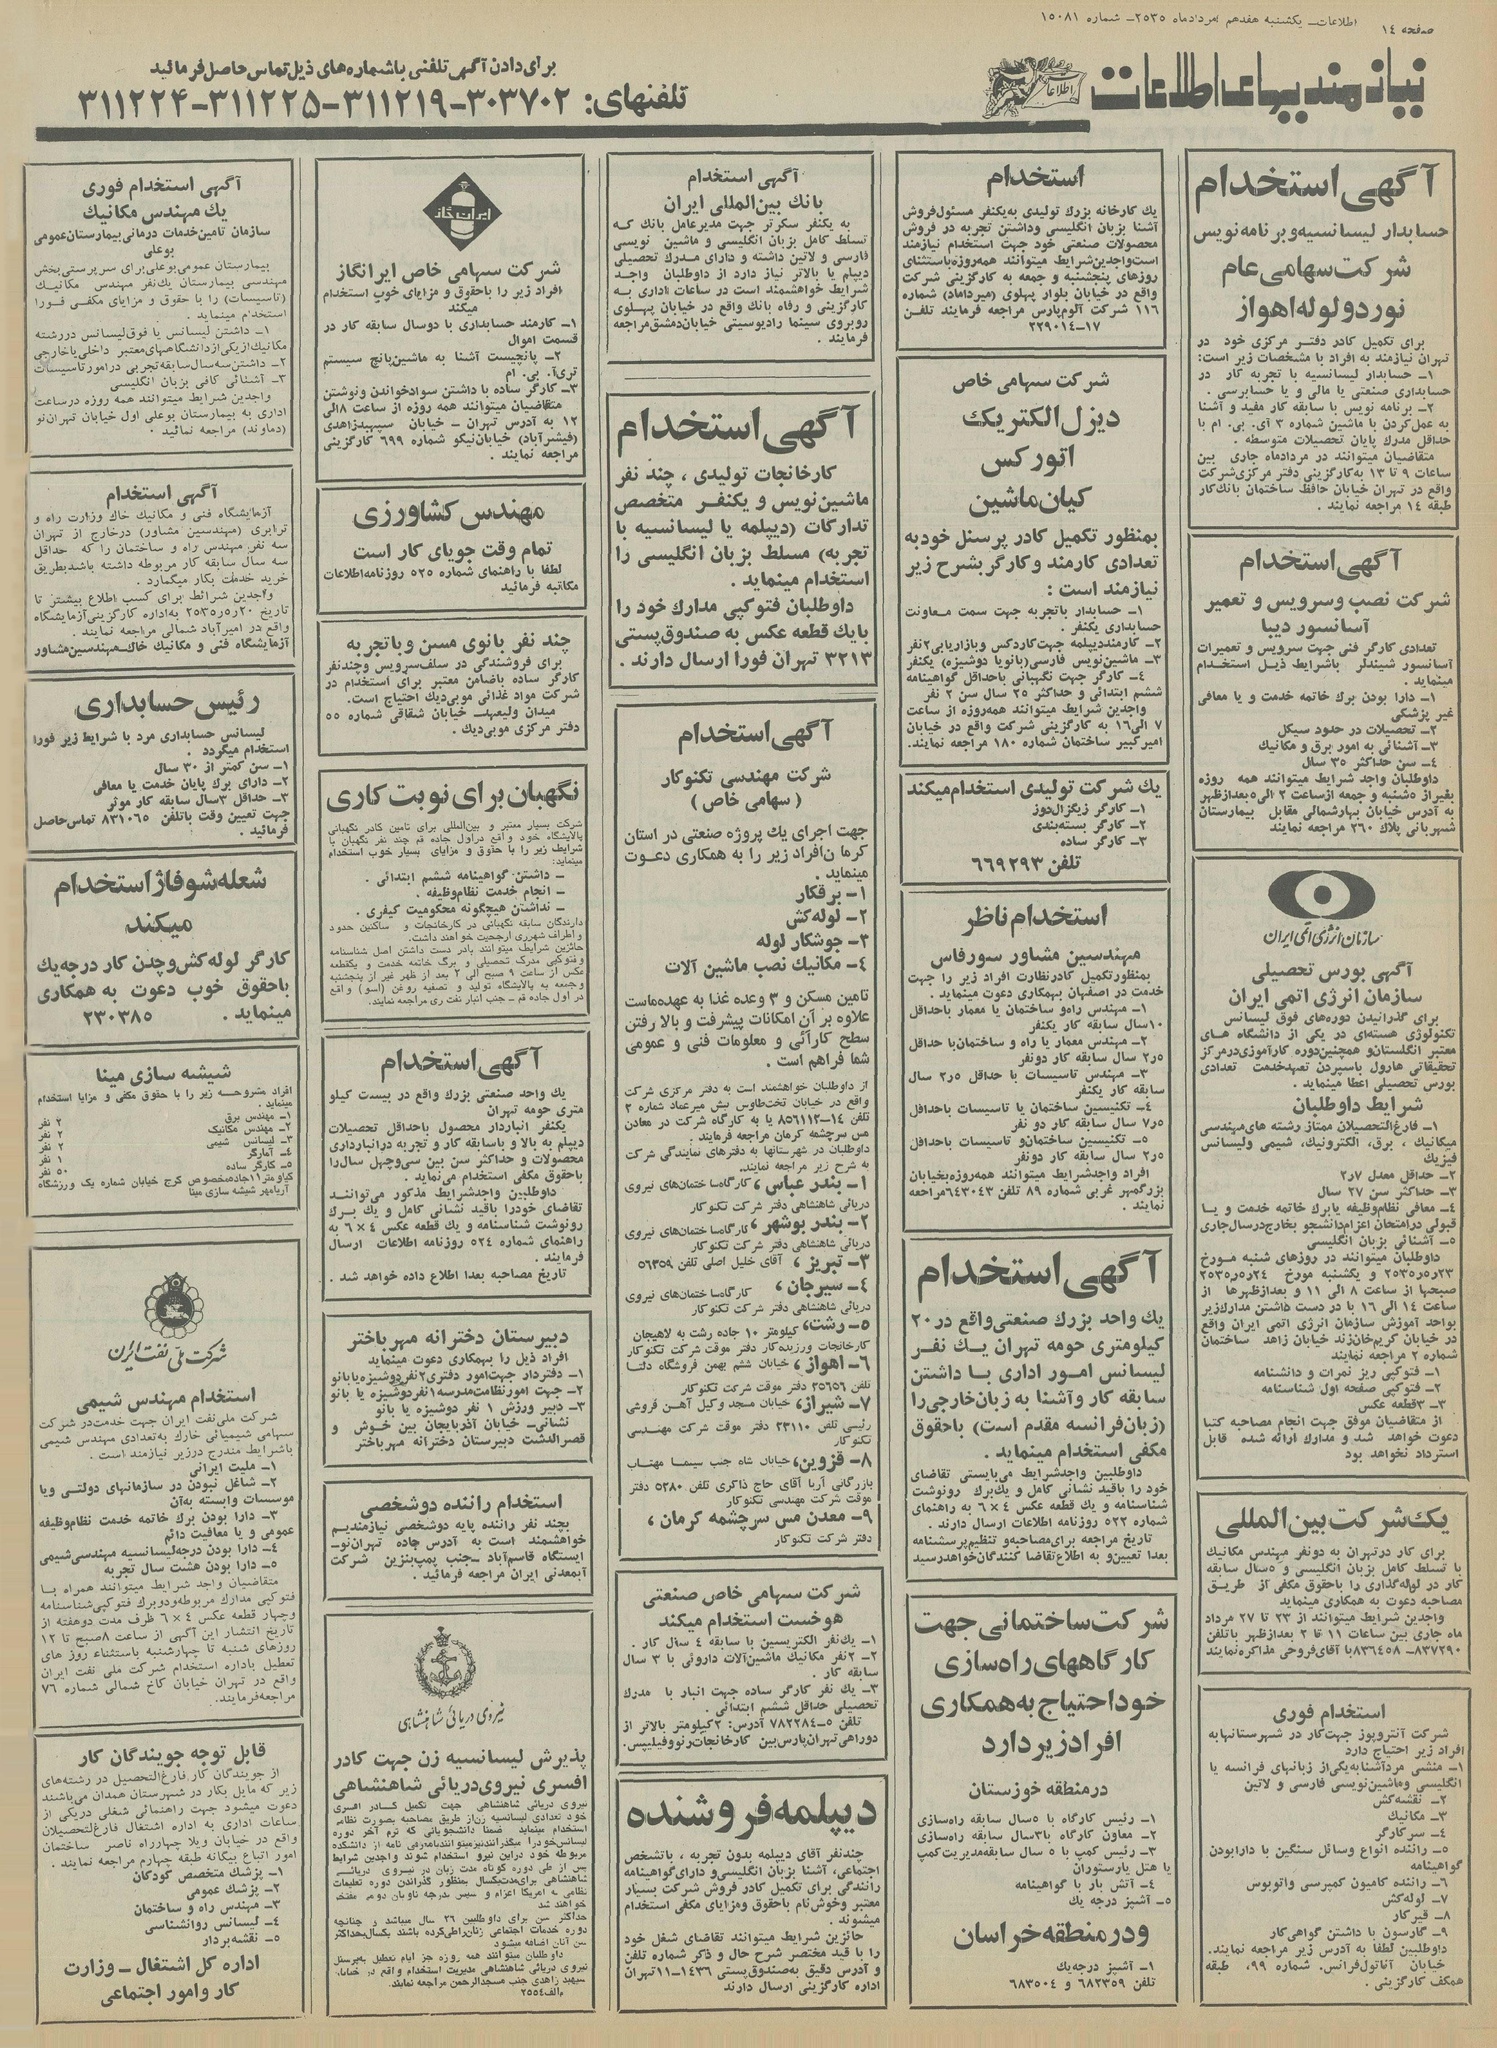 صفحه ۱٤
اطلاعات ـ یکشنبه هفدهم مردادماه ۲۵۳۵ ـ شماره ۱۵۰۸۱
نیازمندیهای اطلاعات
برای دادن آگهی تلفنی باشماره‌های ذیل تماس حاصل فرمائید
تلفنهای: ۳۰۳۷۰۲-۳۱۱۲۱۹-۳۱۱۲۲۵-۳۱۱۲۲۴
آگهی استخدام
حسابدار لیسانسیه و برنامه نویس
شرکت سهامی عام
نورد و لوله اهواز
برای تکمیل کادر دفتر مرکزی خود در
تهران نیازمند به افراد با مشخصات زیر است:
۱ـ حسابدار لیسانسیه با تجربه کار در
حسابداری صنعتی یا مالی و یا حسابرسی .
۲ـ برنامه نویس با سابقه کار مفید و آشنا
به عمل کردن با ماشین شماره ۳ آی. بی. ام با
حداقل مدرک پایان تحصیلات متوسطه .
متقاضیان میتوانند در مردادماه جاری بین
ساعات ۹ تا ۱۳ به کارگزینی دفتر مرکزی شرکت
واقع در تهران خیابان حافظ ساختمان بانک کار
طبقه ۱۴ مراجعه نمایند .
آگهی استخدام
شرکت نصب و سرویس و تعمیر
آسانسور دیبا
تعدادی کارگر فنی جهت سرویس و تعمیرات
آسانسور شیندلر باشرایط ذیل استخدام
مینماید .
۱ـ دارا بودن برگ خاتمه خدمت و یا معافی
غیر پزشکی
۲ـ تحصیلات در حدود سیکل
۳ـ آشنائی به امور برق و مکانیک
۴ـ سن حداکثر ۳۵ سال
داوطلبان واجد شرایط میتوانند همه روزه
بغیر از ۵شنبه و جمعه از ساعت ۲ الی ۵ بعدازظهر
به آدرس خیابان بهارشمالی مقابل بیمارستان
شهربانی پلاک ۲۶۰ مراجعه نمایند
سازمان انرژی اتمی ایران
آگهی بورس تحصیلی
سازمان انرژی اتمی ایران
برای گذرانیدن دوره‌های فوق لیسانس
تکنولوژی هسته‌ای در یکی از دانشگاه های
معتبر انگلستان و همچنین دوره کارآموزی در مرکز
تحقیقاتی هارول باسپردن تعهد خدمت تعدادی
بورس تحصیلی اعطا مینماید .
شرایط داوطلبان
۱ـ فارغ‌التحصیلان ممتاز رشته های مهندسی
میکانیک ، برق، الکترونیک، شیمی و لیسانس
فیزیک
۲ـ حداقل معدل ۲٫۷
۳ـ حداکثر سن ۲۷ سال
۴ـ معافی نظام وظیفه یا برگ خاتمه خدمت و یا
قبولی در امتحان اعزام دانشجو بخارج در سال جاری
۵ـ آشنائی بزبان انگلیسی
داوطلبان میتوانند در روزهای شنبه مورخ
۲۳ر۵ر۲۵۳۵ و یکشنبه مورخ ۲۴ر۵ر۲۵۳۵
صبحها از ساعت ۸ الی ۱۱ و بعدازظهرها از
ساعت ۱۴ الی ۱۶ با در دست داشتن مدارک زیر
بواحد آموزش سازمان انرژی اتمی ایران واقع
در خیابان کریم خان زند خیابان زاهد ساختمان
شماره ۲ مراجعه نمایند
۱ـ فتوکپی ریز نمرات و دانشنامه
۲ـ فتوکپی صفحه اول شناسنامه
۳ـ ۳قطعه عکس
از متقاضیان موفق جهت انجام مصاحبه کتبا
دعوت خواهد شد و مدارک ارائه شده قابل
استرداد نخواهد بود
یک شرکت بین‌المللی
برای کار در تهران به دو نفر مهندس مکانیک
با تسلط کامل بزبان انگلیسی و ۵سال سابقه
کار در لوله‌گذاری را باحقوق مکفی از طریق
مصاحبه دعوت به همکاری مینماید
واجدین شرایط میتوانند از ۲۳ تا ۲۷ مرداد
ماه جاری بین ساعات ۱۱ تا ۲ بعدازظهر باتلفن
۸۳۷۲۹۰-۸۳۶۴۵۸ با آقای فروحی مذاکره نمایند
استخدام فوری
شرکت آنتروپوز جهت کار در شهرستانها به
افراد زیر احتیاج دارد
۱ـ منشی مرد آشنا به یکی از زبانهای فرانسه یا
انگلیسی و ماشین‌نویسی فارسی و لاتین
۲ـ نقشه‌کش
۳ـ مکانیک
۴ـ سرکارگر
۵ـ راننده انواع وسائل سنگین با دارا بودن
گواهینامه
۶ـ راننده کامیون کمپرسی و اتوبوس
۷ـ لوله‌کش
۸ـ قیرکار
۹ـ گارسون با داشتن گواهی کار
داوطلبین لطفا به آدرس زیر مراجعه نمایند.
خیابان آناتول فرانس. شماره ۹۹، طبقه
همکف کارگزینی .
استخدام
یک کارخانه بزرگ تولیدی به یکنفر مسئول فروش
آشنا بزبان انگلیسی و داشتن تجربه در فروش
محصولات صنعتی خود جهت استخدام نیازمند
است واجدین شرایط میتوانند همه‌روزه باستثنای
روزهای پنجشنبه و جمعه به کارگزینی شرکت
واقع در خیابان بلوار پهلوی (میرداماد) شماره
۱۱۶ شرکت آلوم پارس مراجعه فرمایند تلفن
۲۲۹۰۱۴-۱۷
شرکت سهامی خاص
دیزل الکتریک
اتورکس
کیان ماشین
بمنظور تکمیل کادر پرسنل خود به
تعدادی کارمند و کارگر بشرح زیر
نیازمند است :
۱ـ حسابدار باتجربه جهت سمت معاونت
حسابداری یکنفر .
۲ـ کارمند دیپلمه جهت کاردکس و بازاریابی ۲ نفر
۳ـ ماشین‌نویس فارسی(بانو یا دوشیزه) یکنفر
۴ـ کارگر جهت نگهبانی باحداقل گواهینامه
ششم ابتدائی و حداکثر ۲۵ سال سن ۲ نفر
واجدین شرایط میتوانند همه‌روزه از ساعت
۷ الی ۱۶ به کارگزینی شرکت واقع در خیابان
امیرکبیر ساختمان شماره ۱۸۰ مراجعه نمایند.
یک شرکت تولیدی استخدام میکند
۱ـ کارگر زیگزال‌دوز
۲ـ کارگر بسته‌بندی
۳ـ کارگر ساده
تلفن ۶۶۹۲۹۳
استخدام ناظر
مهندسین مشاور سورفاس
بمنظور تکمیل کادر نظارت افراد زیر را جهت
خدمت در اصفهان بهمکاری دعوت مینماید .
۱ـ مهندس راه و ساختمان یا معمار باحداقل
۱۰سال سابقه کار یکنفر
۲ـ مهندس معمار یا راه و ساختمان با حداقل
۲ر۵ سال سابقه کار دونفر
۳ـ مهندس تاسیسات با حداقل ۲ر۵ سال
سابقه کار یکنفر
۴ـ تکنیسین ساختمان یا تاسیسات باحداقل
۷ر۵ سال سابقه کار دو نفر
۵ـ تکنیسین ساختمان و تاسیسات باحداقل
۲ر۵ سال سابقه کار دونفر
افراد واجد شرایط میتوانند همه‌روزه بخیابان
بزرگمهر غربی شماره ۸۹ تلفن ۶۴۳۰۴۳ مراجعه
نمایند .
آگهی استخدام
یک واحد بزرگ صنعتی واقع در ۲۰
کیلومتری حومه تهران یک نفر
لیسانس امور اداری با داشتن
سابقه کار و آشنا به زبان خارجی را
(زبان فرانسه مقدم است) باحقوق
مکفی استخدام مینماید .
داوطلبین واجد شرایط می‌بایستی تقاضای
خود را باقید نشانی کامل و یک برگ رونوشت
شناسنامه و یک قطعه عکس ۴ × ۶ به راهنمای
شماره ۵۲۲ روزنامه اطلاعات ارسال دارند .
تاریخ مراجعه برای مصاحبه و تنظیم پرسشنامه
بعدا تعیین و به اطلاع تقاضا کنندگان خواهد رسید
شرکت ساختمانی جهت
کارگاههای راه‌سازی
خود احتیاج به همکاری
افراد زیر دارد
در منطقه خوزستان
۱ـ رئیس کارگاه با ۵سال سابقه راه‌سازی
۲ـ معاون کارگاه با ۳سال سابقه راه‌سازی
۳ـ رئیس کمپ با ۵ سال سابقه مدیریت کمپ
یا هتل یا رستوران
۴ـ آتش بار با گواهینامه
۵ـ آشپز درجه یک
و در منطقه خراسان
۱ـ آشپز درجه یک
تلفن ۶۸۲۳۵۹ و ۶۸۳۵۰۴
آگهی استخدام
بانک بین‌المللی ایران
به یکنفر سکرتر جهت مدیرعامل بانک که
تسلط کامل بزبان انگلیسی و ماشین نویسی
فارسی و لاتین داشته و دارای مدرک تحصیلی
دیپلم یا بالاتر نیاز دارد از داوطلبان واجد
شرایط خواهشمند است در ساعات اداری به
کارگزینی و رفاه بانک واقع در خیابان پهلوی
روبروی سینما رادیوسیتی خیابان دمشق مراجعه
فرمایند .
آگهی استخدام
کارخانجات تولیدی ، چند نفر
ماشین‌نویس و یکنفر متخصص
تدارکات (دیپلمه یا لیسانسیه با
تجربه) مسلط بزبان انگلیسی را
استخدام مینماید .
داوطلبان فتوکپی مدارک خود را
با یک قطعه عکس به صندوق پستی
۳۲۱۳ تهران فورا ارسال دارند .
آگهی استخدام
شرکت مهندسی تکنوکار
(سهامی خاص)
جهت اجرای یک پروژه صنعتی در استان
کرمان افراد زیر را به همکاری دعوت
مینماید .
۱ـ برقکار
۲ـ لوله‌کش
۳ـ جوشکار لوله
۴ـ مکانیک نصب ماشین آلات
تامین مسکن و ۳ وعده غذا به عهده ماست
علاوه بر آن امکانات پیشرفت و بالا رفتن
سطح کارآئی و معلومات فنی و عمومی
شما فراهم است .
از داوطلبان خواهشمند است به دفتر مرکزی شرکت
واقع در خیابان تخت‌طاوس نبش میرعماد شماره ۲
تلفن ۱۴-۸۵۶۱۱۲ یا به کارگاه شرکت در معادن
مس سرچشمه کرمان مراجعه فرمایند .
داوطلبان در شهرستانها به دفترهای نمایندگی شرکت
به شرح زیر مراجعه نمایند.
۱ـ بندر عباس ، کارگاه ساختمان‌های نیروی
دریائی شاهنشاهی دفتر شرکت تکنوکار
۲ـ بندر بوشهر ، کارگاه ساختمان‌های نیروی
دریائی شاهنشاهی دفتر شرکت تکنوکار
۳ـ تبریز ، آقای خلیل اصلی تلفن ۵۶۳۵۹
۴ـ سیرجان ، کارگاه ساختمان‌های نیروی
دریائی شاهنشاهی دفتر شرکت تکنوکار
۵ـ رشت، کیلومتر ۱۰ جاده رشت به لاهیجان
کارخانجات ورزیده‌کار دفتر موقت شرکت تکنوکار
۶ـ اهواز ، خیابان ششم بهمن فروشگاه دلتا
تلفن ۲۵۶۵۶ دفتر موقت شرکت تکنوکار
۷ـ شیراز، خیابان مسجد وکیل آهن فروشی
رئیسی تلفن ۲۳۱۱۰ دفتر موقت شرکت مهندسی
تکنوکار
۸ـ قزوین، خیابان شاه جنب سینما مهتاب
بازرگانی آریا آقای حاج ذاکری تلفن ۵۲۸۰ دفتر
موقت شرکت مهندسی تکنوکار
۹ـ معدن مس سرچشمه کرمان ،
دفتر شرکت تکنوکار
شرکت سهامی خاص صنعتی
هوخست استخدام میکند
۱ـ یک نفر الکتریسین با سابقه ۴ سال کار .
۲ـ ۲نفر مکانیک ماشین‌آلات داروئی با ۳ سال
سابقه کار .
۳ـ یک نفر کارگر ساده جهت انبار با مدرک
تحصیلی حداقل ششم ابتدائی .
تلفن ۵-۷۸۲۲۸۴ آدرس: ۲کیلومتر بالاتر از
دوراهی تهران پارس بین کارخانجات رنو و فیلیپس.
دیپلمه فروشنده
چند نفر آقای دیپلمه بدون تجربه ، با تشخص
اجتماعی، آشنا بزبان انگلیسی و دارای گواهینامه
رانندگی برای تکمیل کادر فروش شرکت بسیار
معتبر و خوش نام باحقوق و مزایای مکفی استخدام
میشوند .
حائزین شرایط میتوانند تقاضای شغل خود
را با قید مختصر شرح حال و ذکر شماره تلفن
و آدرس دقیق به صندوق پستی ۱۴۳۶-۱۱ تهران
اداره کارگزینی ارسال دارند
ایران گاز
شرکت سهامی خاص ایرانگاز
افراد زیر را باحقوق و مزایای خوب استخدام
میکند
۱ـ کارمند حسابداری با دوسال سابقه کار در
قسمت اموال
۲ـ پانچیست آشنا به ماشین پانچ سیستم
تری‌آ. بی. ام
۳ـ کارگر ساده با داشتن سواد خواندن و نوشتن
متقاضیان میتوانند همه روزه از ساعت ۸ الی
۱۲ به آدرس تهران - خیابان سپهبد زاهدی
(فیشرآباد) خیابان نیکو شماره ۶۹۹ کارگزینی
مراجعه نمایند .
مهندس کشاورزی
تمام وقت جویای کار است
لطفا با راهنمای شماره ۵۲۵ روزنامه اطلاعات
مکاتبه فرمائید
چند نفر بانوی مسن و باتجربه
برای فروشندگی در سلف سرویس و چند نفر
کارگر ساده باضامن معتبر برای استخدام در
شرکت مواد غذائی موبی‌دیک احتیاج است.
میدان ولیعهد ـ خیابان شقاقی شماره ۵۵
دفتر مرکزی موبی‌دیک .
نگهبان برای نوبت کاری
شرکت بسیار معتبر و بین‌المللی برای تامین کادر نگهبانی
پالایشگاه خود واقع در اول جاده قم چند نفر نگهبان با
شرایط زیر را با حقوق و مزایای بسیار خوب استخدام
مینماید:
ـ داشتن گواهینامه ششم ابتدائی .
ـ انجام خدمت نظام وظیفه .
ـ نداشتن هیچگونه محکومیت کیفری .
دارندگان سابقه نگهبانی در کارخانجات و ساکنین حدود
و اطراف شهرری ارجحیت خواهند داشت.
حائزین شرایط میتوانند بادر دست داشتن اصل شناسنامه
و فتوکپی مدرک تحصیلی و برگ خاتمه خدمت و یکقطعه
عکس از ساعت ۹ صبح الی ۲ بعد از ظهر غیر از پنجشنبه
و جمعه به پالایشگاه تولید و تصفیه روغن (اسو) واقع
در اول جاده قم - جنب انبار نفت ری مراجعه نمایند.
آگهی استخدام
یک واحد صنعتی بزرگ واقع در بیست کیلو
متری حومه تهران
یکنفر انباردار محصول باحداقل تحصیلات
دیپلم به بالا و باسابقه کار و تجربه در انبارداری
محصولات و حداکثر سن بین سی و چهل سال را
باحقوق مکفی استخدام می‌نماید .
داوطلبین واجد شرایط مذکور می‌توانند
تقاضای خود را باقید نشانی کامل و یک برگ
رونوشت شناسنامه و یک قطعه عکس ۴ × ۶ به
راهنمای شماره ۵۲۴ روزنامه اطلاعات ارسال
فرمایند .
تاریخ مصاحبه بعدا اطلاع داده خواهد شد .
دبیرستان دخترانه مهر باختر
افراد ذیل را بهمکاری دعوت مینماید
۱ـ دفتردار جهت امور دفتری ۲نفر دوشیزه یا بانو
۲ـ جهت امور نظامت مدرسه ۱نفر دوشیزه یا بانو
۳ـ دبیر ورزش ۱ نفر دوشیزه یا بانو
نشانی ـ خیابان آذربایجان بین خوش و
قصرالدشت دبیرستان دخترانه مهر باختر
استخدام راننده دو شخصی
بچند نفر راننده پایه دو شخصی نیازمندیم
خواهشمند است به آدرس جاده تهران‌نو ـ
ایستگاه قاسم‌آباد ـ جنب پمپ بنزین شرکت
آبمعدنی ایران مراجعه فرمائید .
نیروی دریائی شاهنشاهی
پذیرش لیسانسیه زن جهت کادر
افسری نیروی دریائی شاهنشاهی
نیروی دریائی شاهنشاهی جهت تکمیل کادر افسری
خود تعدادی لیسانسیه زن از طریق مصاحبه بصورت نظامی
استخدام مینماید ضمنا دانشجویانی که ترم آخر دوره
لیسانس خود را میگذرانند نیز میتوانند با معرفی نامه از دانشکده
مربوطه خود در این نیرو استخدام شوند واجدین شرایط
پس از طی دوره کوتاه مدت زبان در نیروی دریائی
شاهنشاهی برای مدت یکسال بمنظور گذراندن دوره تعلیمات
نظامی به امریکا اعزام و سپس بدرجه ناوبان دومی مفتخر
خواهند شد
حداکثر سن برای داوطلبین ۲۶ سال میباشد و چنانچه
دوره خدمات اجتماعی زنان را طی کرده باشند یکسال بحداکثر
سن آنان اضافه میشود
داوطلبان میتوانند همه روزه جز ایام تعطیل به پرسنل
نیروی دریائی شاهنشاهی مدیریت استخدام واقع در خیابان
سپهبد زاهدی جنب مسجدالرحمن مراجعه نمایند.
م‌الف ۲۵۵۴
آگهی استخدام فوری
یک مهندس مکانیک
سازمان تامین خدمات درمانی بیمارستان عمومی
بوعلی
بیمارستان عمومی بوعلی برای سرپرستی بخش
مهندسی بیمارستان یک نفر مهندس مکانیک
(تاسیسات) را با حقوق و مزایای مکفی فورا
استخدام مینماید .
۱ـ داشتن لیسانس یا فوق لیسانس در رشته
مکانیک از یکی از دانشگاههای معتبر داخلی یا خارجی
۲ـ داشتن سه سال سابقه تجربی در امور تاسیسات
۳ـ آشنائی کافی بزبان انگلیسی
واجدین شرایط میتوانند همه روزه در ساعت
اداری به بیمارستان بوعلی اول خیابان تهران نو
(دماوند) مراجعه نمائید .
آگهی استخدام
آزمایشگاه فنی و مکانیک خاک وزارت راه و
ترابری (مهندسین مشاور) در خارج از تهران
سه نفر مهندس راه و ساختمان را که حداقل
سه سال سابقه کار مربوطه داشته باشد بطریق
خرید خدمت بکار میگمارد .
واجدین شرائط برای کسب اطلاع بیشتر تا
تاریخ ۲۰ر۵ر۲۵۳۵ به اداره کارگزینی آزمایشگاه
واقع در امیرآباد شمالی مراجعه نمایند .
آزمایشگاه فنی و مکانیک خاک ـ مهندسین مشاور
رئیس حسابداری
لیسانس حسابداری مرد با شرایط زیر فورا
استخدام میگردد .
۱ـ سن کمتر از ۳۰ سال
۲ـ دارای برگ پایان خدمت یا معافی
۳ـ حداقل ۳سال سابقه کار موثر
جهت تعیین وقت باتلفن ۸۳۱۰۶۵ تماس حاصل
فرمائید .
شعله شوفاژ استخدام
میکند
کارگر لوله کش و چدن کار درجه یک
باحقوق خوب دعوت به همکاری
مینماید . ۲۳۰۳۸۵
شیشه سازی مینا
افراد مشروحه زیر را با حقوق مکفی و مزایا استخدام
مینماید .
۱ـ مهندس برق ۲ نفر
۲ـ مهندس مکانیک ۲ نفر
۳ـ لیسانس شیمی ۲ نفر
۴ـ آمارگر ۱ نفر
۵ـ کارگر ساده ۵۰ نفر
کیلومتر ۱۱جاده مخصوص کرج خیابان شماره یک ورزشگاه
آریامهر شیشه سازی مینا
شرکت ملی نفت ایران
استخدام مهندس شیمی
شرکت ملی نفت ایران جهت خدمت در شرکت
سهامی شیمیائی خارک به تعدادی مهندس شیمی
باشرایط مندرج در زیر نیازمند است .
۱ـ ملیت ایرانی
۲ـ شاغل نبودن در سازمانهای دولتی و یا
موسسات وابسته به آن
۳ـ دارا بودن برگ خاتمه خدمت نظام وظیفه
عمومی و یا معافیت دائم
۴ـ دارا بودن درجه لیسانسیه مهندسی شیمی
۵ـ دارا بودن هشت سال تجربه
متقاضیان واجد شرایط میتوانند همراه با
فتوکپی مدارک مربوطه و دو برگ فتوکپی شناسنامه
و چهار قطعه عکس ۴ × ۶ ظرف مدت دو هفته از
تاریخ انتشار این آگهی از ساعت ۸صبح تا ۱۲
روزهای شنبه تا چهارشنبه باستثناء روز های
تعطیل باداره استخدام شرکت ملی نفت ایران
واقع در تهران خیابان کاخ شمالی شماره ۷۶
مراجعه فرمایند.
قابل توجه جویندگان کار
از جویندگان کار فارغ‌التحصیل در رشته‌های
زیر که مایل بکار در شهرستان همدان می‌باشند
دعوت میشود جهت راهنمائی شغلی در یکی از
ساعات اداری به اداره اشتغال فارغ‌التحصیلان
واقع در خیابان ویلا چهارراه ناصر ساختمان
امور اتباع بیگانه طبقه چهارم مراجعه نمایند .
۱ـ پزشک متخصص کودکان
۲ـ پزشک عمومی
۳ـ مهندس راه و ساختمان
۴ـ لیسانس روانشناسی
۵ـ نقشه‌بردار
اداره کل اشتغال ـ وزارت
کار و امور اجتماعی